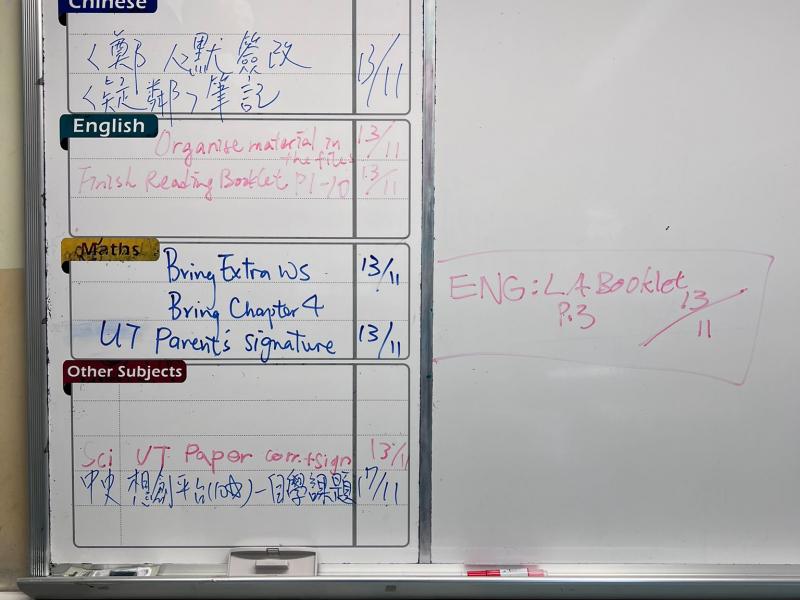 Chinese
〈鄭人〉默簽改 13/11
〈疑鄰〉筆記
English
Organise material in the files 13/11
Finish Reading Booklet P1-10 13/11
Maths
Bring Extra WS 13/11
Bring Chapter 4
UT Parent's signature 13/11
Other Subjects
Sci UT Paper corr.+sign 13/11
中史 想創平台(10分)-自學課題 17/11
ENG: LA Booklet
P.3 13/11